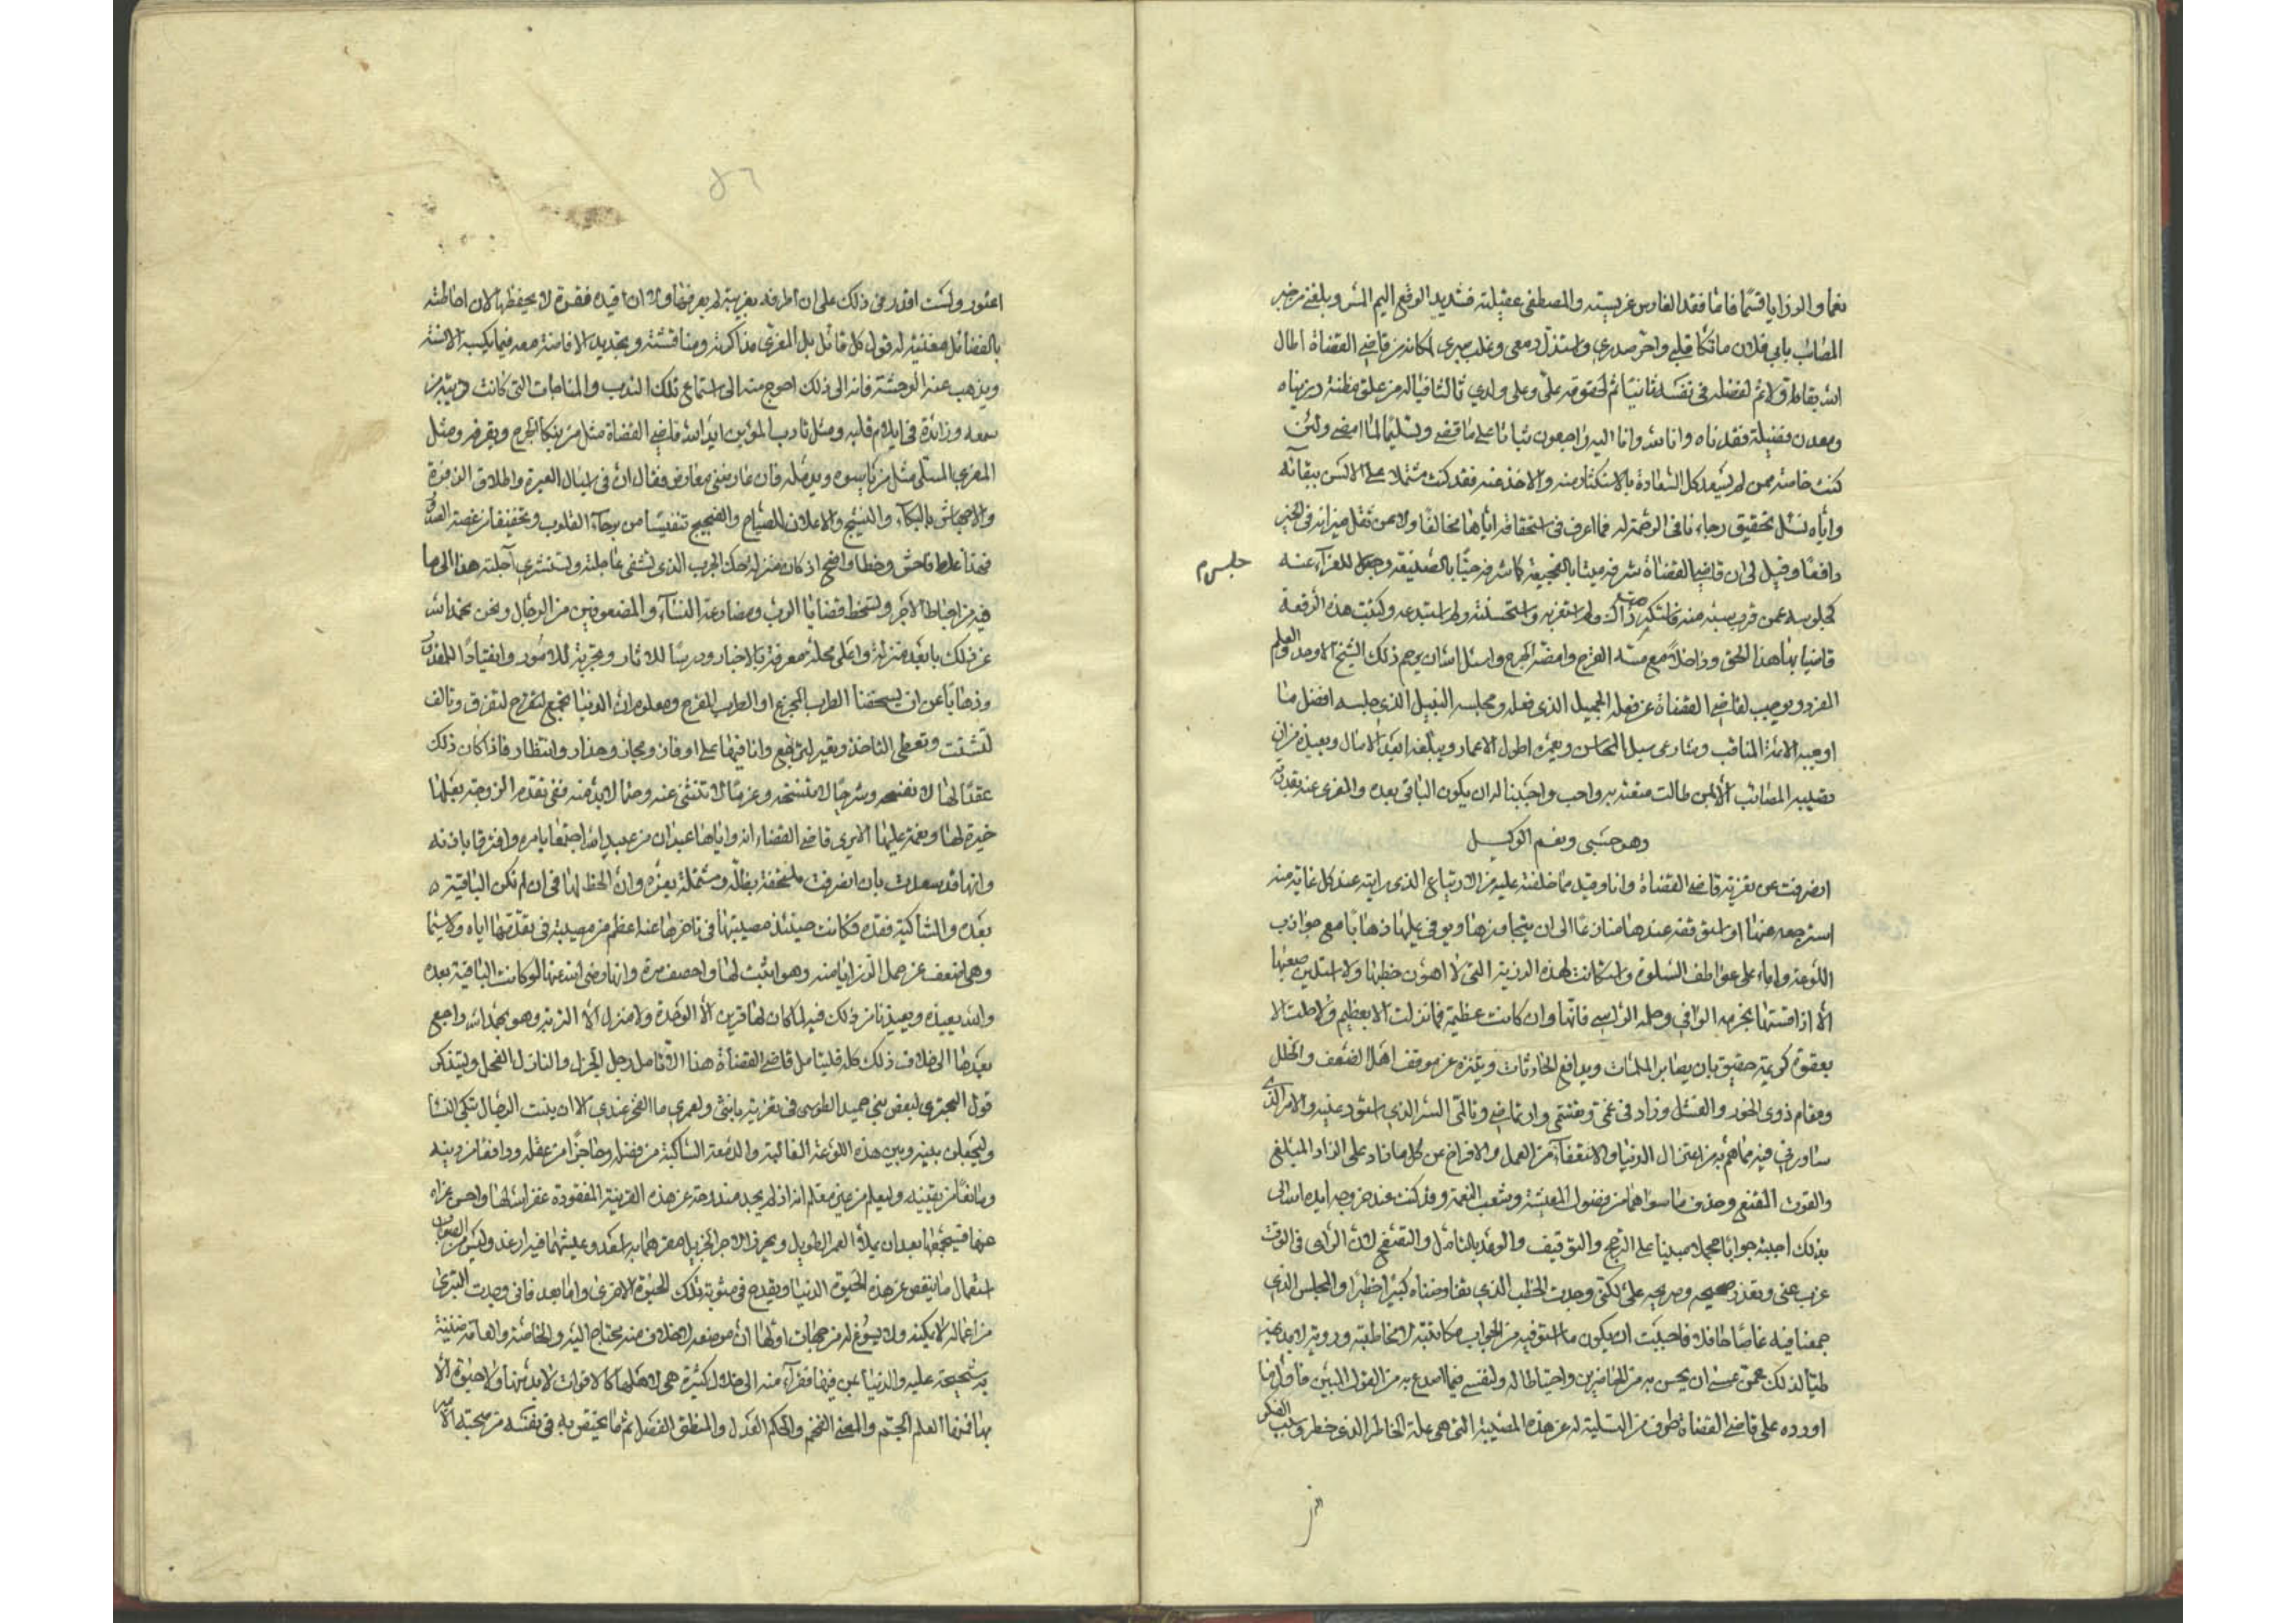 نعما والرزايا قسما فاما فقد الفارس غريسته والمصطفى عقيلته فشديد الوقع اليم المس وبلغني من خبر
المصاب بابي فلان ما نكا قلبي واحر صدري واستذل دمعي وغلب صبري لمكانه من قاضي القضاة اطال
الله بقاءه اولا ثم لفضله في نفسه ثانيا ثم لحقوقه علي وعلى ولدي ثالثا فياله من علق مظنة رزيناه
ومعدن فضيلة فقدناه وانا لله وانا اليه راجعون ثباتا على ما قضى وتسليما لما امضى ولئن
كنت خاصة ممن لم يسعد كل السعادة بالاستكثار منه والاخذ عنه فقد كنت مشتملا على الانس ببقائه
واياه نسئل تحقيق رجاءنا في الرحمة له فما اعرف في استحقاقه اياها مخالفا ولا عمن ثقل ميزانه في الخير
دافعا وقيل لي ان قاضي القضاة شرفه ميتا بالفجيعة كما شرفه حيا بالصنيعة وجلس للعزاء عنه
جلس م
كجلوسه عمن قرب نسبه منه فما استكبرت ذاك ولم استغربه واستحسنته ولم استبدعه وكتبت هذه الرقعة
قاضيا بها هذا الحق وداخلا مع مسه القرح وامضه الجرح واسئل الله ان يرحم ذلك الشيخ الاوحد والعلم
المفرد ويوجب لقاضي القضاة عن فعله الجميل الذي فعله ومجلسه النبيل الذي جلسه افضل ما
اوجبه لائمة المناقب وشارعي سبل المحاسن ويعمره اطول الاعمار ويبلغه ابعد الامال ويعيذه من ان
تصيبه المصائب الا لمن طالت متعته به واحب واحببنا له ان يكون الباقي بعده والمعزى عنه بقدرته
وهو حسبي ونعم الوكيل
انصرفت عن تعزية قاضي القضاة وانا وقيذ مما خلفته عليه من الارتياع الذي رايته عند كل غاية منه
استرجعه عنها او استوقفه عندها منازعا الى ان يتجاوزها ويوفي عليها ذهابا مع جواذب
اللوعة واباء على عواطف السلوة واستكانة لهذه الرزية التي لا اهون خطبها ولا استلين صعبها
الا اذا قستها بحزمه الوافي وحلمه الراسي فانها وان كانت عظيمة فما نزلت الا بعظيم ولا حلت الا
بعقوة كريمة حقيق بان يصابر الملمات ويدافع الحادثات ويتنزه عن موقف اهل الضعف والخلل
ومقام ذوي الخور والفشل وزاد في غمتي وارتماضي السر الذي استودعنيه والامر الذي
شاورني فيه مما هم به من اعتزال الدنيا والاستعفاء من العمل والافراج عن كل ما زاد على الزاد المبلغ
والقوت المقنع وحذف ما سواهما من فضول المعيشة وشعب النعمة وقد كنت عند خروجه ايده الله الي
بذلك اجبته جوابا مجملا مبنيا على الترجح والتوقيف والوعد بالتامل والتصفح لان الراي في الوقت
عزب عني وتعذر صحيحه وصريحه علي لكني وجدت الخطب الذي تفاوضناه كبيرا خطيرا والمجلس الذي
جمعنا فيه غاصا حافلا فاحببت ان يكون ما استوفيه من الجواب مكاتبة لا مخاطبة وروية لا بديهة
طيا لذلك عمن عسى ان يحس به من الحاضرين واحتياطا له ولنفسي فيما اصدع به من القول المبين فاول ما
اورده على قاضي القضاة طرف من التسلية له عن هذه المصيبة التي هي علة الخاطر الذي خطر وسبب الفكر
٥٦
اعتور ولست اقدر في ذلك على ان اطرفه بغريبة لم يعرفها ولا ان افيده فقرة لا يحفظها لان احاطته
بالفضائل مغنية له قول كل قائل بل المغزى مذاكرته ومناقشته وتجديد الافاضة معه فيما يكسبه الانسة
ويذهب عنه الوحشة فانه الى ذلك احوج منه الى استماع تلك الندب والمناحات التي كانت من
سمعه وزائدة في ايلام قلبه ومثل ثادب المؤمن ايد الله قاضي القضاة مثل من ينكا الجرح ويقرفه ومثل
المعزي المسلي مثل من ياسوه ويدمله فان عارضني معارض فقال ان في اسبال العبرة واطلاق الزفرة
والاجهاش بالبكاء والنشيج والاعلان للصياح والضجيج تنفيسا من برحاء القلوب وتخفيفا من غصة الصدور
فهذا غلط فاحش وخطا واضح اذ كان بمنزلة حك الجرب الذي تشفى عاجلته وتستشري آجلته هذا الى ما
فيه من احباط الاجر وتسخط قضايا الرب ومضارعة النساء والمضعوفين من الرجال ونحن بحمد الله
عن ذلك بابعد منزلة واعلى محلة معرفة بالاخبار ودرسا للاثار وتجربة للامور وانقيادا للمقدور
وذهابا عن ان يستخفنا الطرب المجزع او الطرب المفرح ومعلوم ان الدنيا تجمع لتفرق وتالف
لتشتت وتعطي لتاخذ وتعير لترتجع وانا فيها على اوفاز ومجاز وحذار وانتظار فاذا كان ذلك
عقدا لها لا تفسخه وشرجا لا تنسخه وعزما لا تنثني عنه وحتما لا بد منه ففي تقدم الزوجة بعلها
خيرة لها ونعمة عليها الا يرى قاضي القضاة انه واياها عبدان من عبيد الله اجتمعا بامره وافترقا باذنه
وانها قد سعدت بان انصرفت ملتحفة بظله ومشتملة بعزه وان الحظ لها في ان لم تكن الباقية
بعده والشاكية فقده فكانت حينئذ مصيبتها في تاخرها عنه اعظم من مصيبته في تقدمها اياه ولا سيما
وهي اضعف عن حمل الرزايا منه وهو اثبت لها واحصف مرة وانها لو كانت الباقية بعده
والله يعيذه ويعيذنا من ذلك فيه لما كان لها قرين الا الوحدة ولا منزل الا التربة وهو بحمد الله راجع
بعدها الى خلاف ذلك كله فليتامل قاضي القضاة هذا تامل رجل الجزل والنازل الفحل وليتذكر
قول البحتري لبعض بني حميد الطوسي في تعزيته بانثى ولعمري ما العجز عندي الا ان يبيت الرجال تبكي النسا
وليجعلن بينه وبين هذه اللوعة الغالبة والدمعة الساكبة من فضله وحاجزا من عقله ودافعا من دينه
ومانعا من يقينه وليعلم من عين معلم انه اذ لم يجد مندوحة عن هذه القرينة المفقودة غفر الله لها واحسن عزاه
عنها فسيجمعهما بعد ان يملا العمر الطويل ويحرز الاجر الجزيل مقر هما به اسعد وعيشهما فيه ارغد وليس من الصواب
استعمال ما ينقص عن هذه الحيوة الدنيا ويقدح في مثوبة تلك الحيوة الاخرى واما بعد فاني وجدت التبري
من اعماله لا يمكنه ولا يسوغ له من جهات اولها ان موضعه لا خلاف منه محتاج اليه والخاصة والعامة ضنينة
به شحيحة عليه والدنيا عن فيها فقراء منه الى خلال كثيرة هي لاهلها كالاقوات لا بد منها ولا حيوة الا
بها فمنها العلم الجم والمعنى الفخم والحكم العدل والمنطق الفصل ثم ما يختص به في نفسه من صحبته الامير